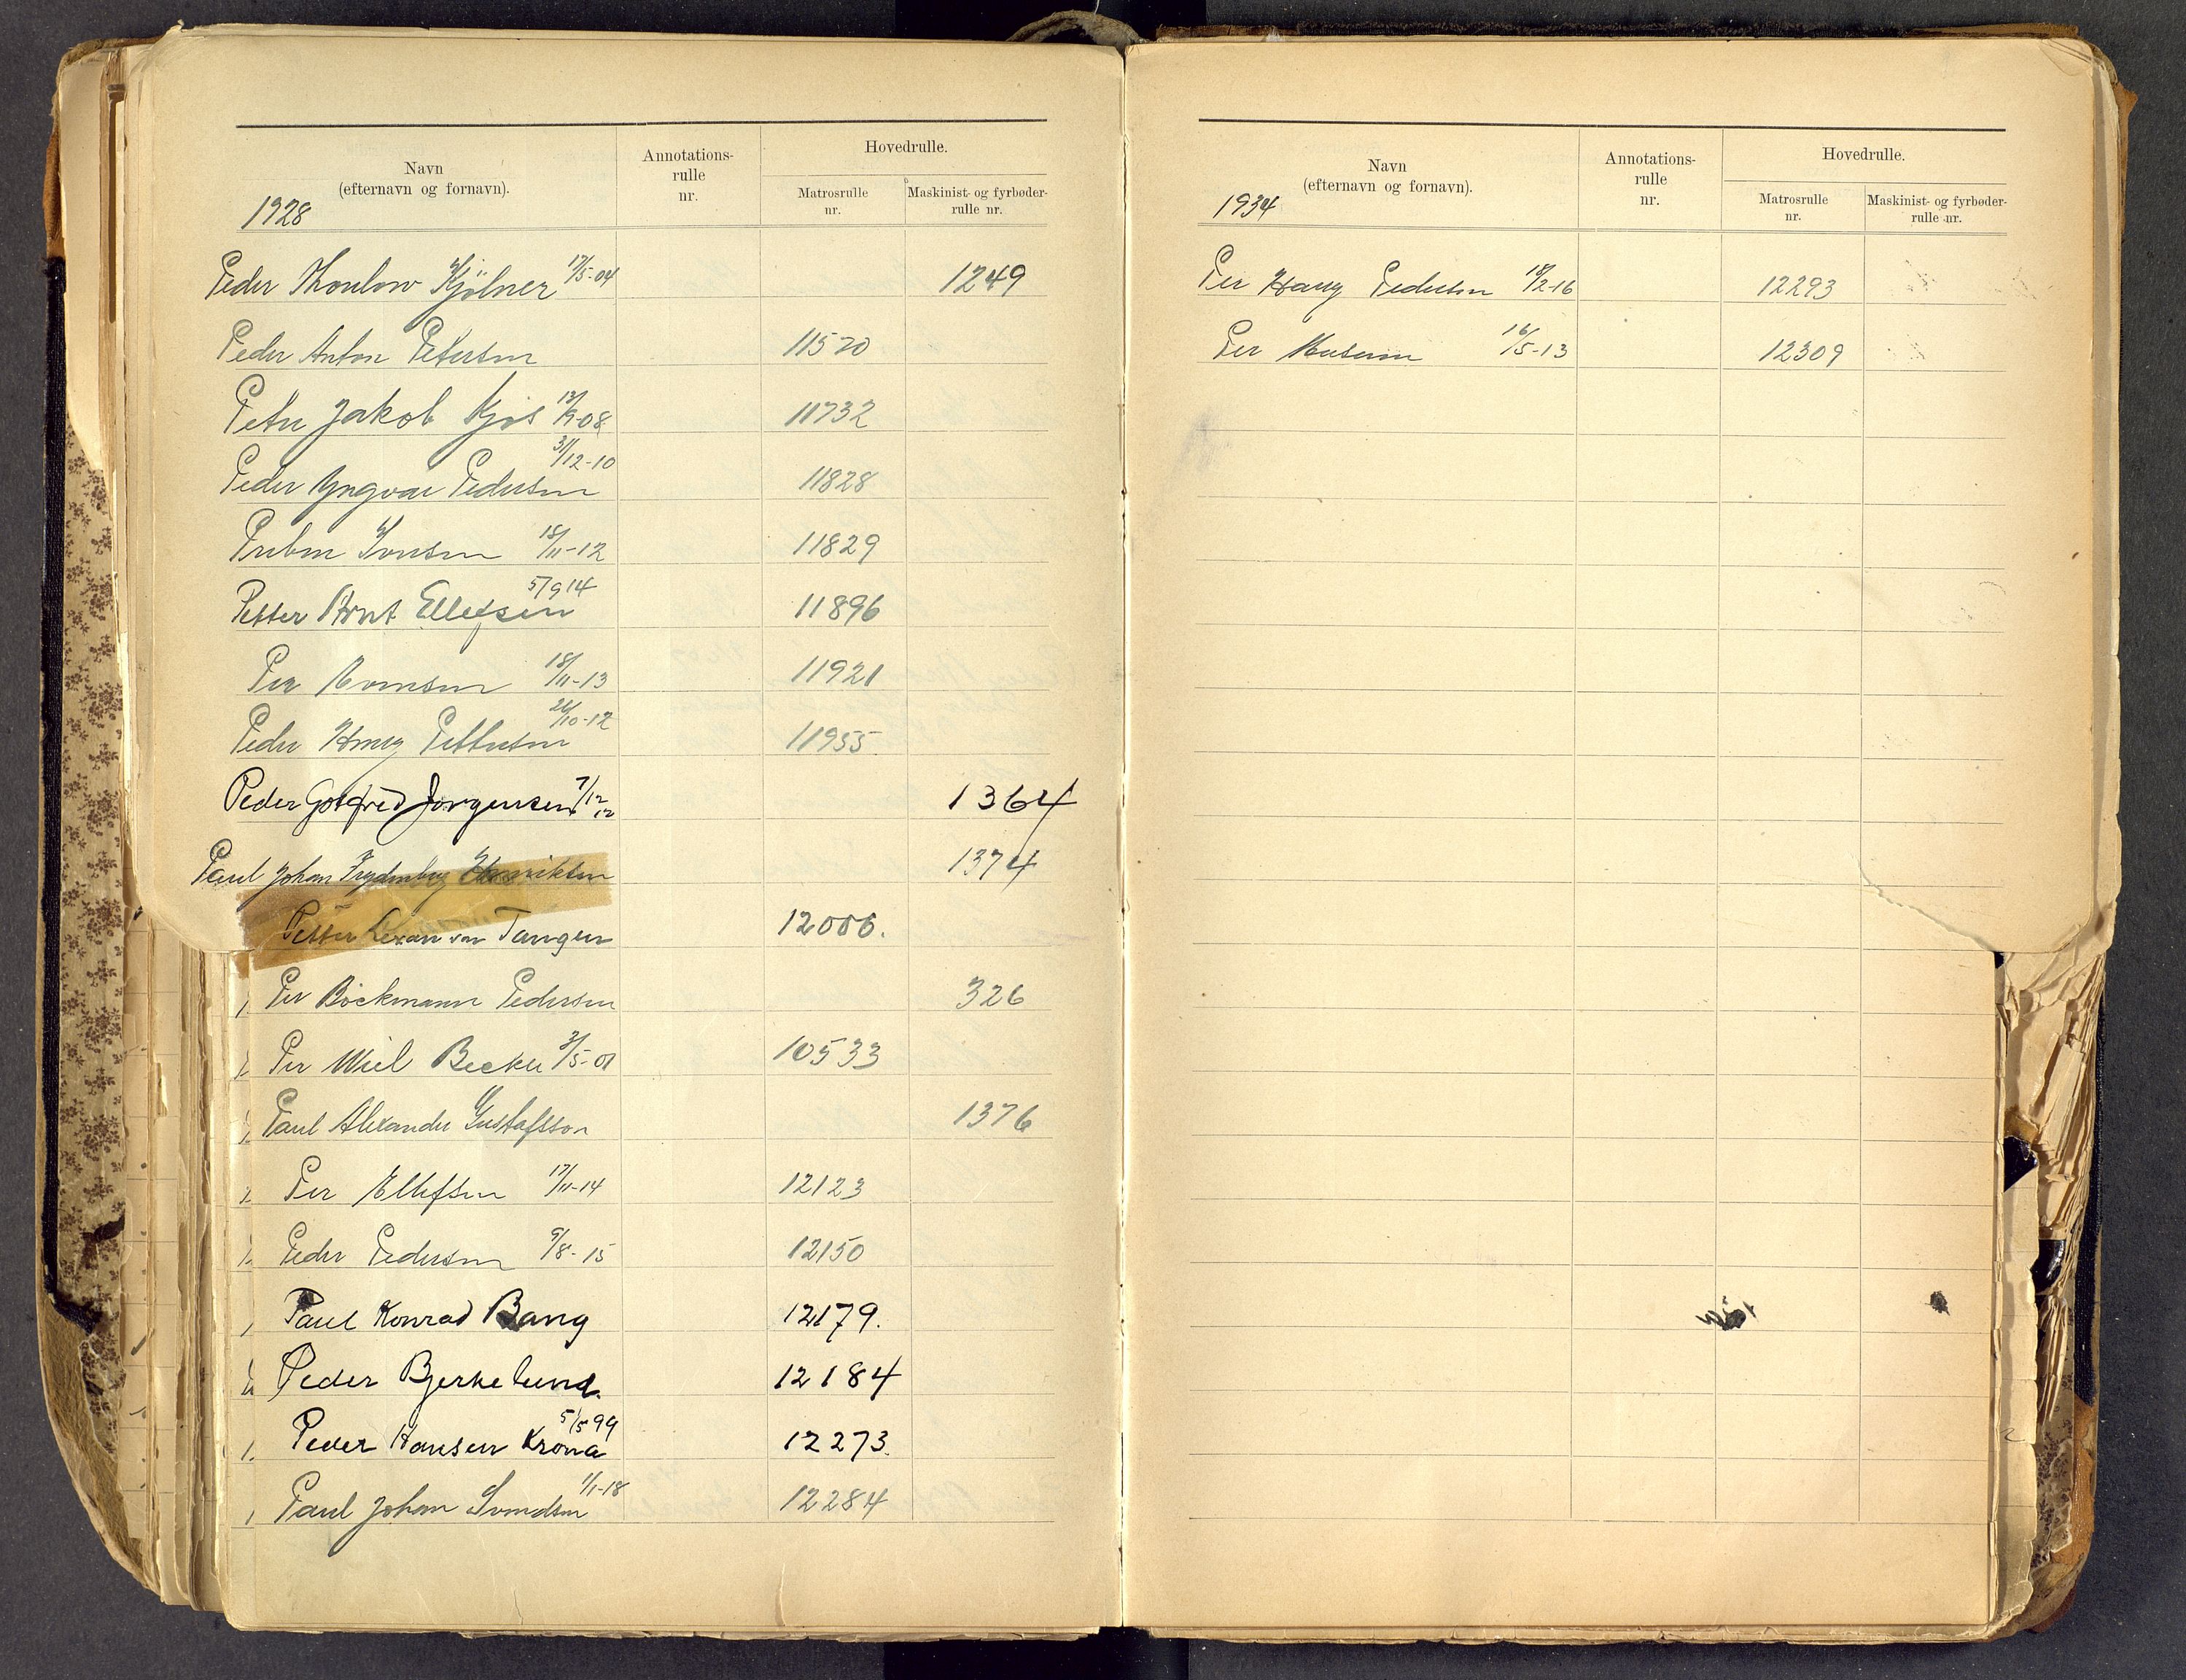 Navn
(efternavn og fornavn).
Annotations-
rulle
nr.
Hovedrulle.
Matrosrulle
nr.
Maskinist- og fyrbøder-
rulle nr.
1928
Peder Thoulow Kjölner 17/5-04 1249
Peder Anton Petersen 11520
Peter Jakob Kjös 08 11732
Peder Yngvar Pedersen 31/12-10 11828
Preben Iversen 18/11-12 11829
Petter Bernt Ellefsen 5/9 14 11896
Per Evensen 18/11-13 11921
Peder Henry Pettersen 10-12 11955.
Peder Gotfred Jørgensen 7/12 12 1364
Paul Johan Frydenberg Henriksen 1374
Petter Tangen 12006.
Per Böckmann Pedersen 326
Per Wiel Becker 3/5-01 10533
Paul Alexander Gustafsson 1376
Per Ellefsen 17/11-14 12123
Peder Pedersen 9/8-15 12150
Paul Konrad Bang 12179.
Peder Bjerkelund. 12184
Peder Hansen Krona 5/5 99 12273.
Paul Johan Svendsen 1/1-18 12284
Navn
(efternavn og fornavn).
Annotations-
rulle
nr.
Hovedrulle.
Matrosrulle
nr.
Maskinist- og fyrbøder-
rulle nr.
1934
Per Haug Pedersen 18/2-16 12293
Per 16/5-13 12309